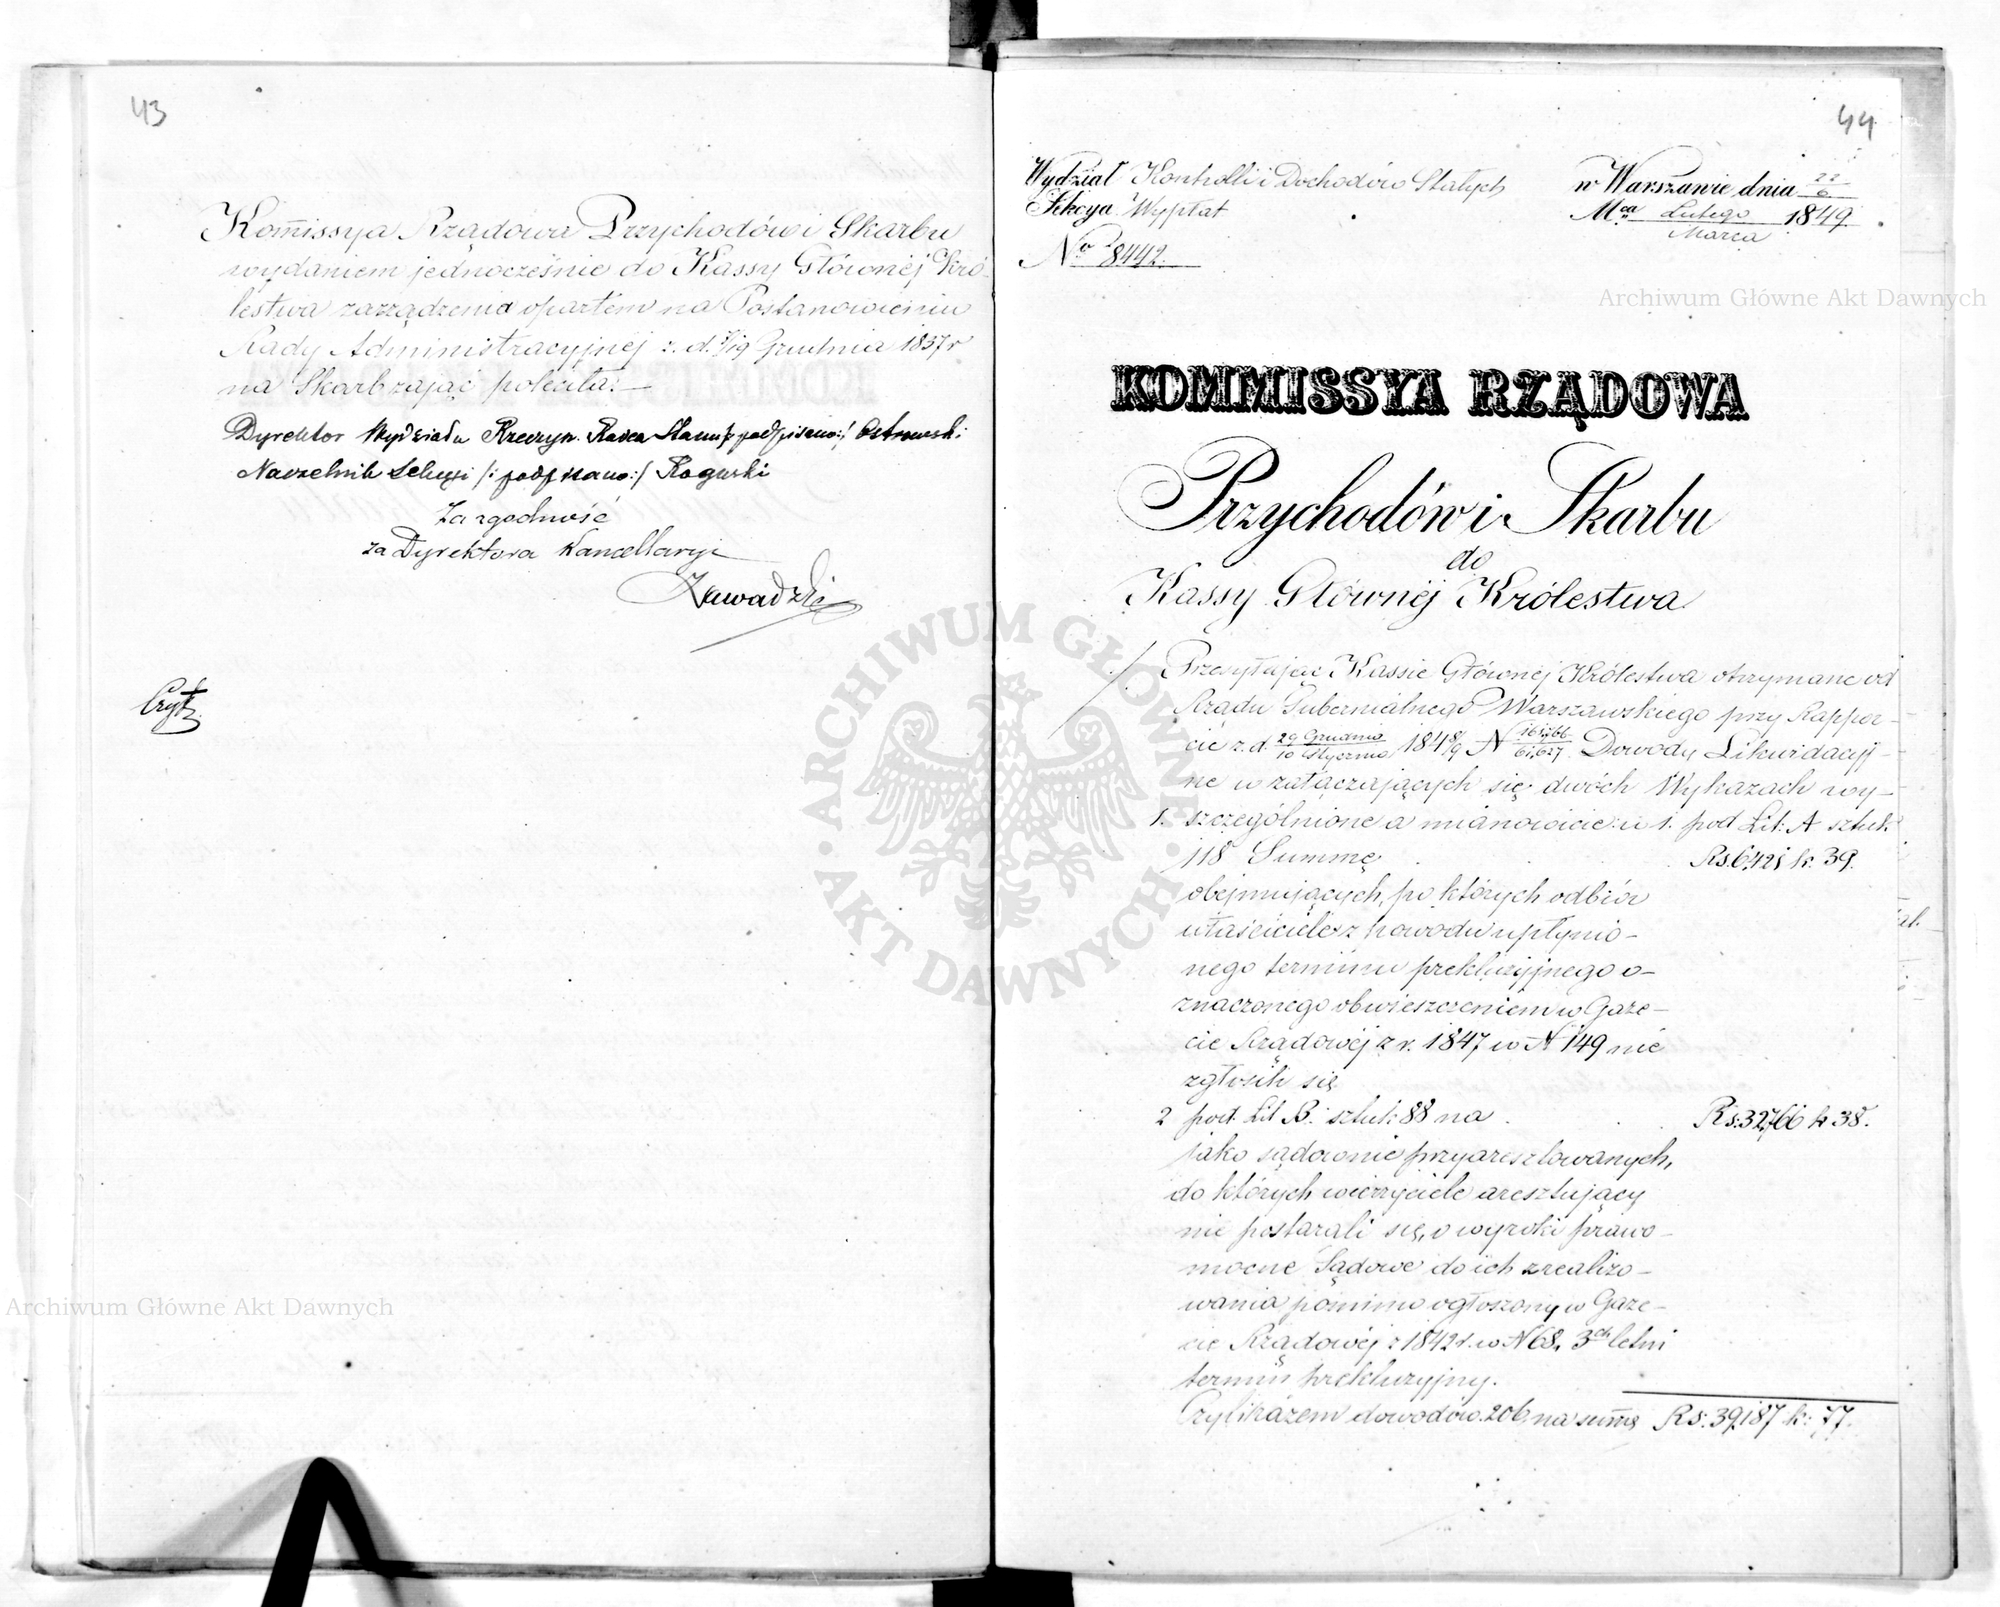 43
Kom̅issya Rządowa Przychodów i Skarbu
wydaniem jednocześnie do Kassy Głównéj Kró-
lestwa zarządzenia opartém na Postanowieniu
Rady Administracyjnéj z. d. 7/19 Grudnia 1837 r
na Skarb zająć poleciła.—
Dyrektor Wydziału Rzeczyw. Radca Stanu /: podpisano:/ Ostrowski
Naczelnik Sekcyi /: podpisano:/ Rogurski
Za zgodność
za Dyrektora Kancellaryi
Zawadzki
Czyt
44
Wydział Kontrolli i Dochodów Stałych
Sekcya Wypłat
Nro 8442.
w Warszawie dnia 22/6
Mca Lutego/Marca 1849.
KOMMISSYA RZĄDOWA
Przychodów i Skarbu
do
Kassy Głównéj Królestwa
Przesyłając Kassie Głównéj Królestwa otrzymane od
Rządu Gubernialnego Warszawskiego przy Rappor-
cie z. d. 29 Grudnia/10 Stycznia 1848/9 N Dowody Likwidacyj-
ne w załączających się dwóch Wykazach wy-
1. szczególnione a mianowicie: 1. pod Lit: A sztuk
118 Summę Rs. 6,421 k. 39.
obejmujących, po których odbiór
właściciele z powodu upłynio-
nego terminu prekluzyjnego o-
znaczonego obwieszczeniem w Gaze-
cie Rządowéj z r. 1847 w N 149 nie
zgłosili się
2 pod. Lit B. sztuk 88 na Rs: 32,766 k 38.
jako sądownie przyaresztowanych,
do których wierzyciele aresztujący
nie postarali się, o wyroki prawo-
mocne Sądowe do ich zrealizo-
wania pomimo ogłoszony w Gaze-
cie Rządowéj z 1842 r. w N 68, 3ch letni
termin prekluzyjny.
Czyli razem dowodów 206 na sum̅ę Rs: 39,187 k: 77.
Archiwum Główne Akt Dawnych
Archiwum Główne Akt Dawnych
ARCHIWUM GŁÓWNE · AKT DAWNYCH ·